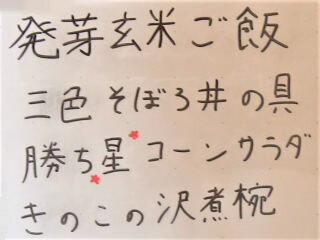 発芽玄米ご飯
三色そぼろ丼の具
勝ち星コーンサラダ
きのこの沢煮椀